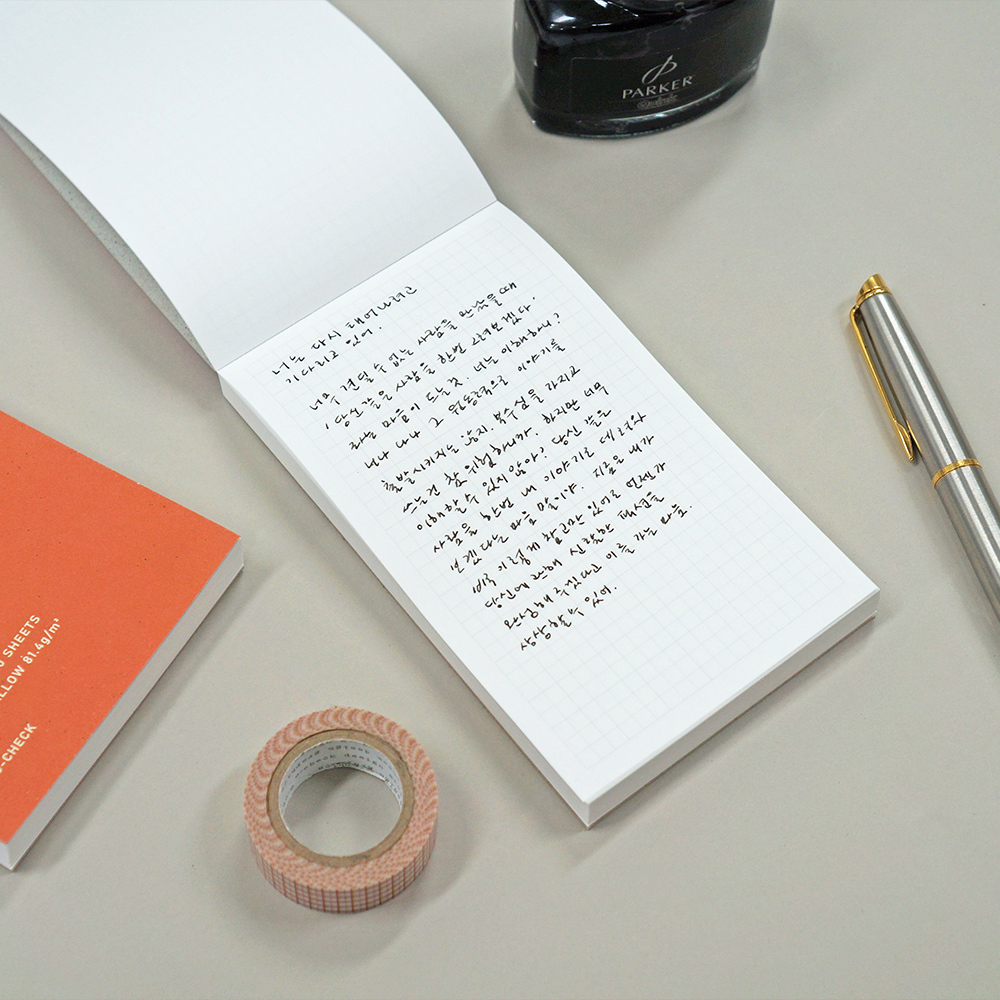 PARKER
Quink
너는 다시 태어나려고
기다리고 있어.
너무 견딜 수 없는 사람을 만났을 때
'당신 같은 사람을 한번 그려보겠다'
라는 마음이 드는 것. 너는 이해하니?
너나 나나 그 원동력으로 이야기를
출발시키지는 않지. 복수심을 가지고
쓰는건 참 위험하니까. 하지만 너무
이해할 수 있지 않아? 당신 같은
사람을 한번 내 이야기로 데려와
보겠다는 마음 말이야. 지금은 내가
비록 이렇게 참고만 있어도 언젠가
당신에 관해 신랄한 캐릭터를
완성해 주겠다고 이를 가는 마음.
상상할 수 있어.
SHEETS
81.4g/m²
-CHECK